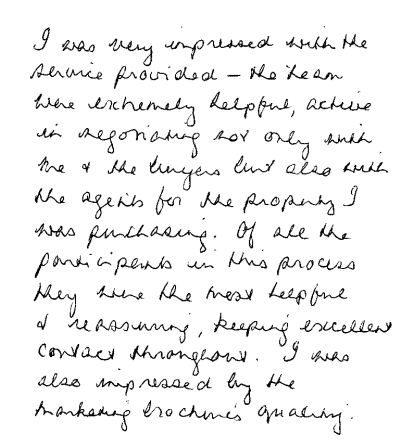 I was very impressed with the
service provided – the team
were extremely helpful, active
in negotiating not only with
me & the buyers but also with
the agents for the property I
was purchasing. Of all the
participants in this process
they were the most helpful
& reassuring, keeping excellent
contact throughout. I was
also impressed by the
marketing brochure's quality.